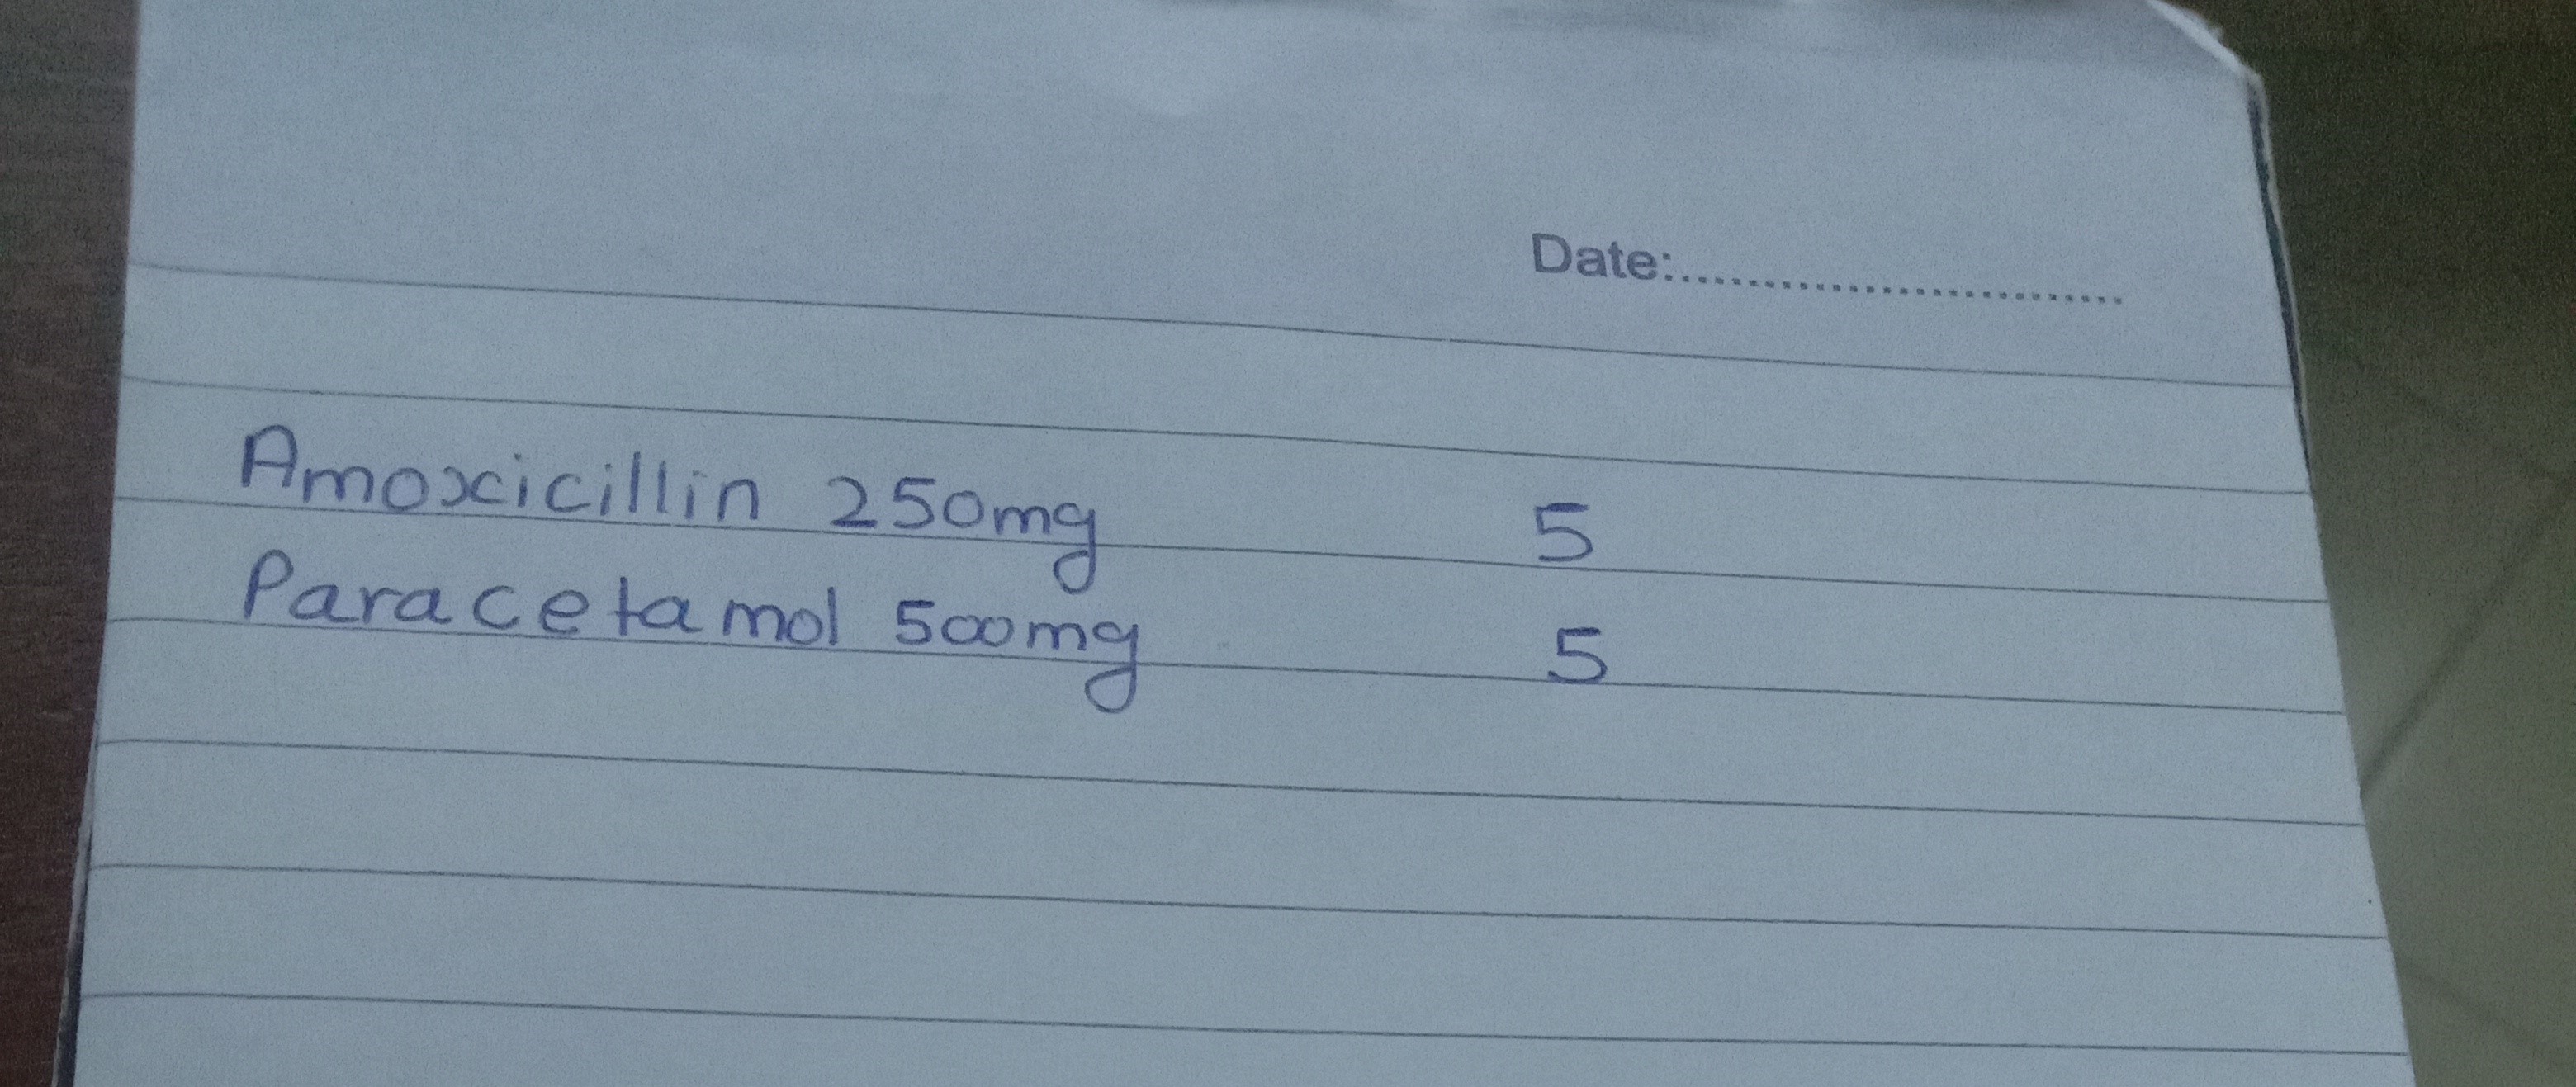 Date:..............................
Amoxicillin 250mg 5
Paracetamol 500mg 5